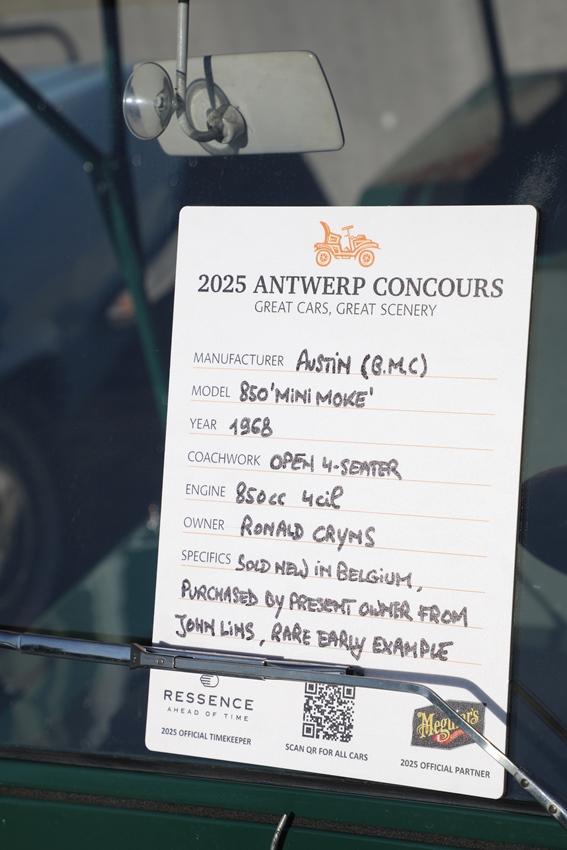 2025 ANTWERP CONCOURS
GREAT CARS, GREAT SCENERY
MANUFACTURER AUSTIN (B.M.C)
MODEL 850 'MINI MOKE'
YEAR 1968
COACHWORK OPEN 4-SEATER
ENGINE 850cc 4cil
OWNER RONALD CRYNS
SPECIFICS SOLD NEW IN BELGIUM,
PURCHASED BY PRESENT OWNER FROM
JOHN LINS, RARE EARLY EXAMPLE
RESSENCE
AHEAD OF TIME
2025 OFFICIAL TIMEKEEPER
SCAN QR FOR ALL CARS
Meguiar's
2025 OFFICIAL PARTNER